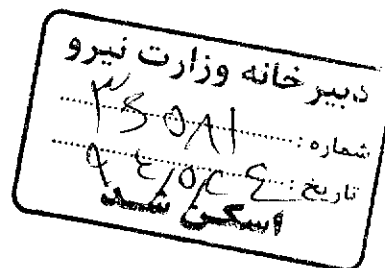 دبیرخانه وزارت نیرو
شماره: ۳۶۵۸۱
تاریخ:
اسکن شد